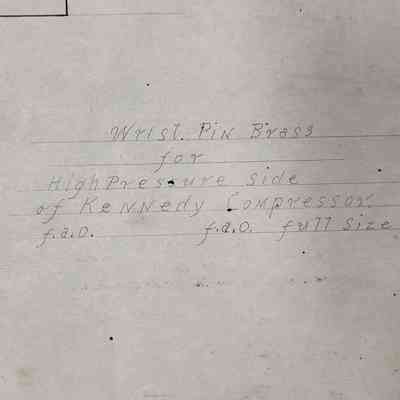 Wrist. Pin Brass
for
High Pressure side
of Kennedy Compressor.
f.a.o. f.a.o. full size